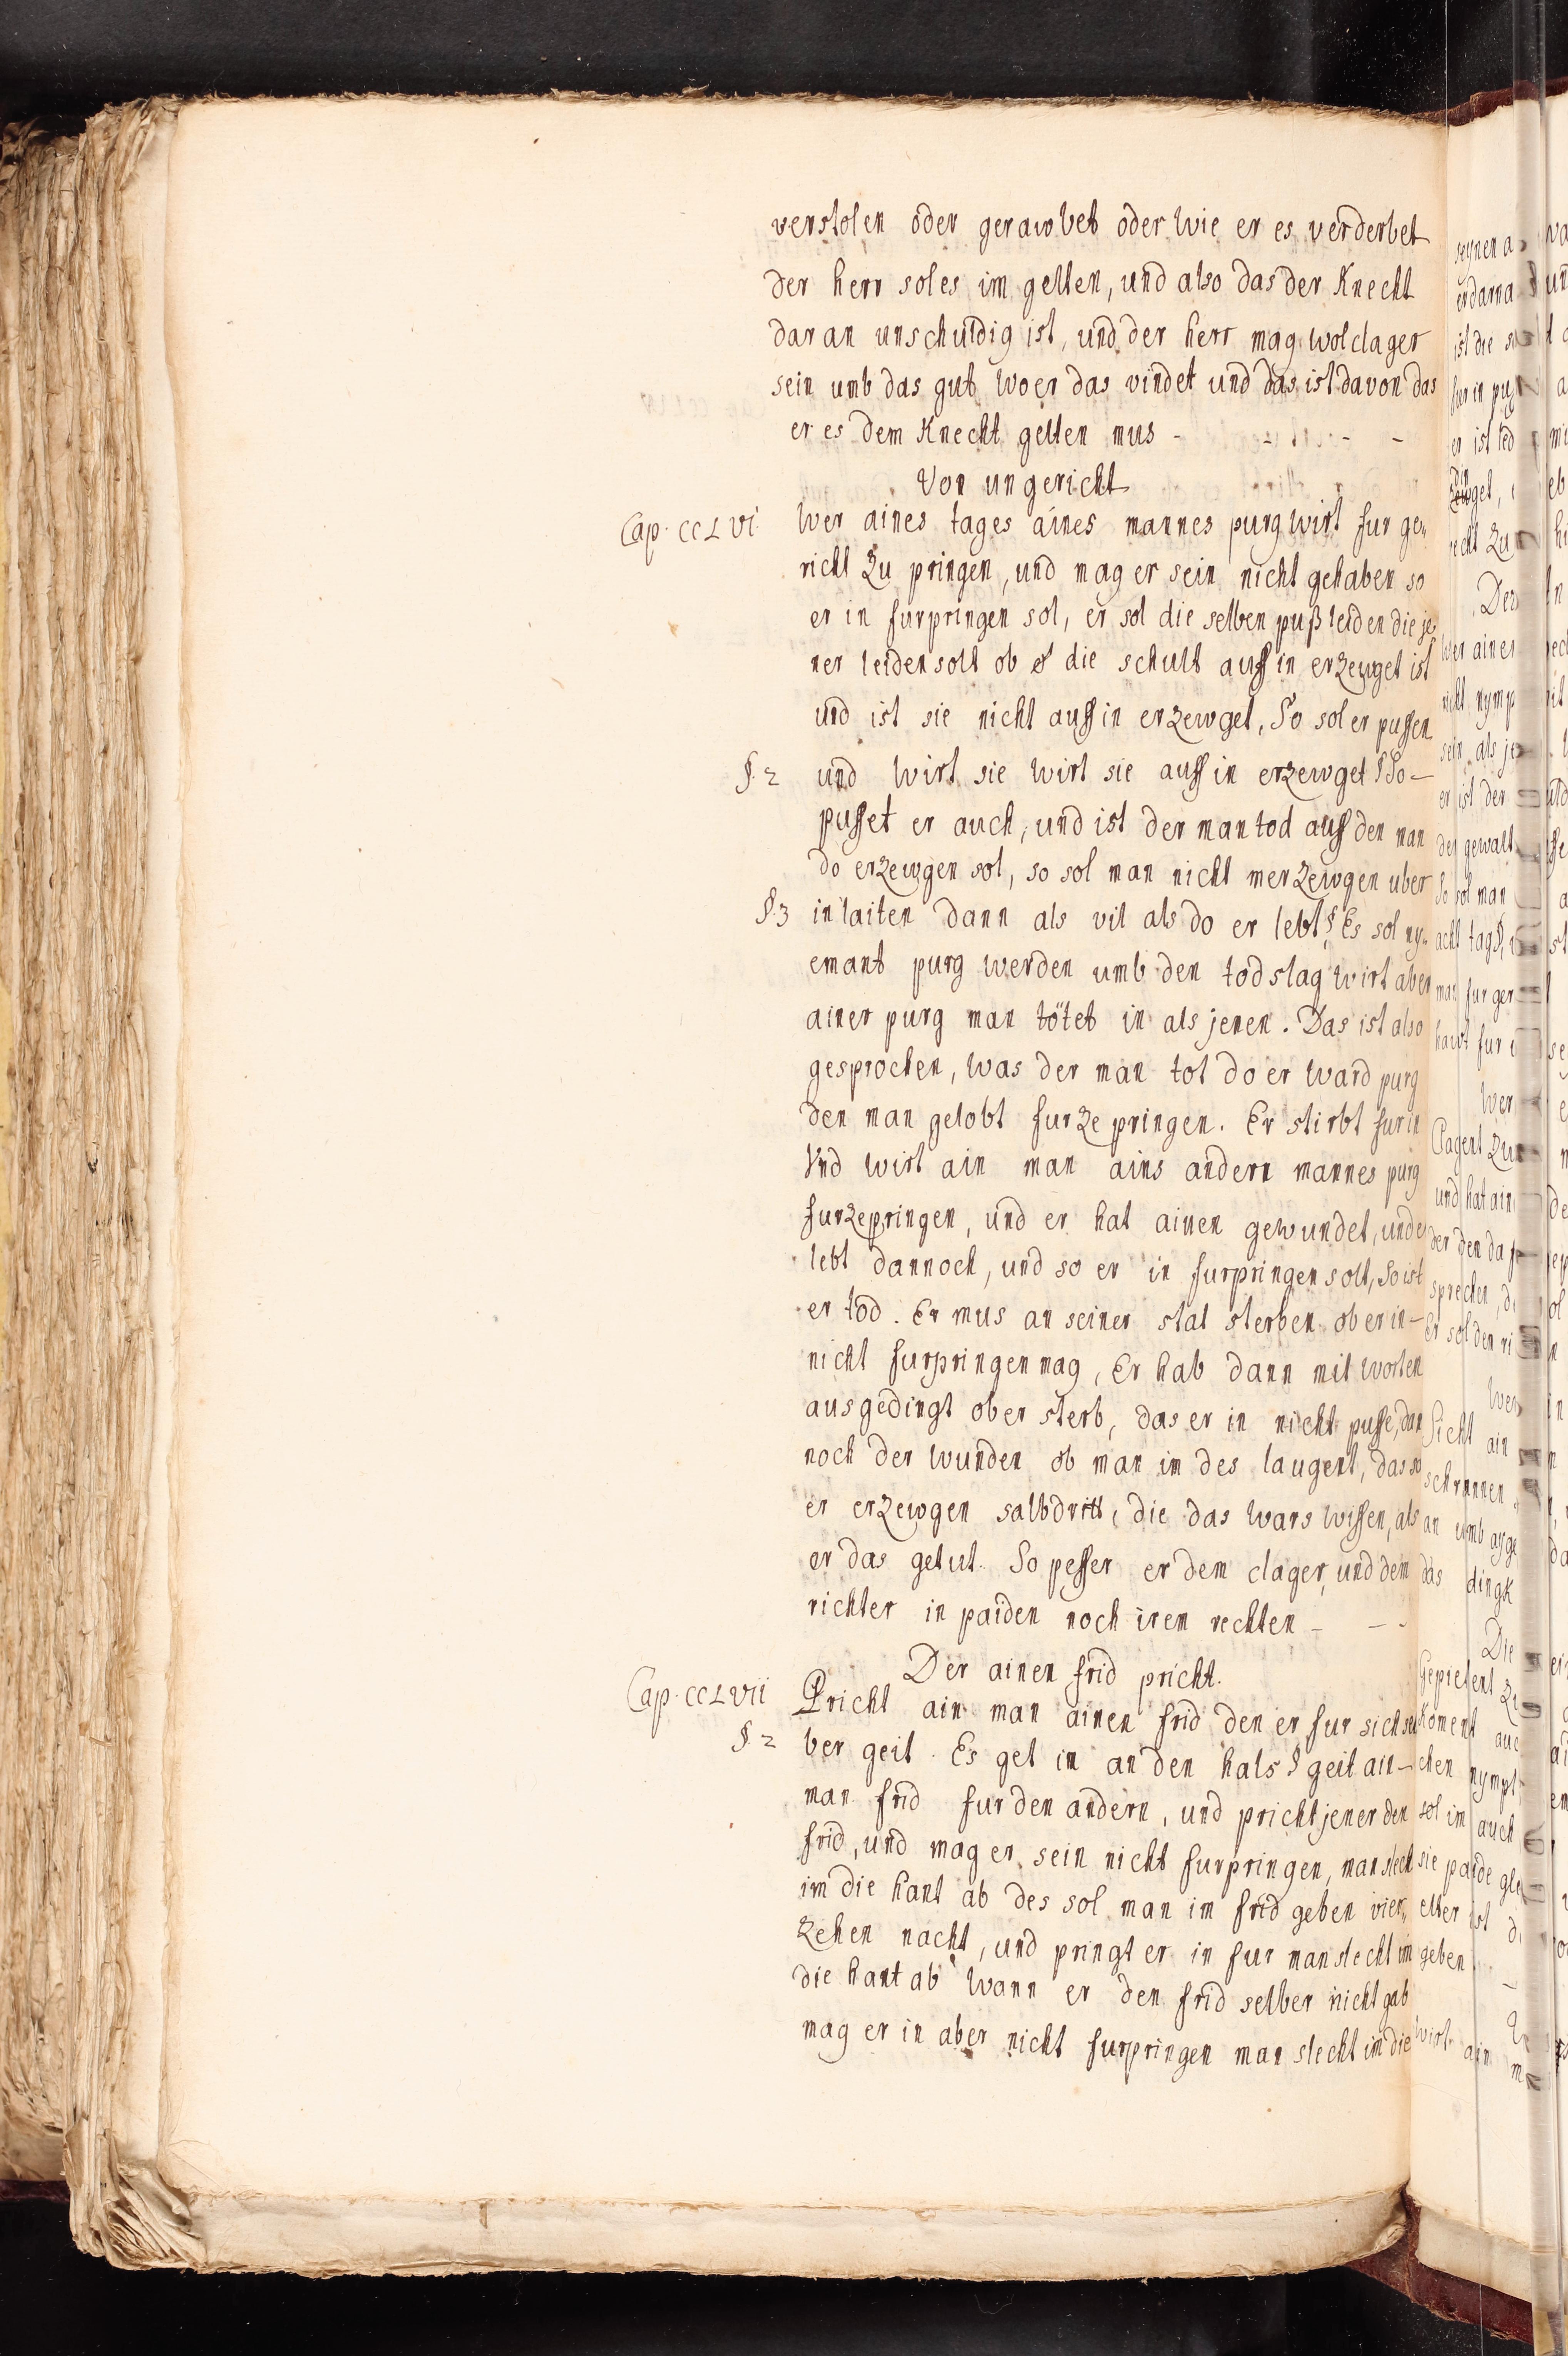 verstolen oder gerawbet oder wie er es verderbet
der herr sol es im gelten, und also das der Knecht
daran unschuldig ist, und der herr mag wol clager
sein umb das gut wo er das vindet und das ist davon das
er es dem Knecht gelten mus - - - -
Von ungericht
Cap. CCLVi Wer aines tages aines mannes purg wirt fur ge„
richt zu pringen, und mag er sein nicht gehaben so
er in furpringen sol, er sol die selben puß leiden die je„
ner leiden solt ob die schult auff in erzewget ist
und ist sie nicht auff in erzewget, So sol er pussen
§. 2 und wirt sie wirt sie auff in erzewget § So -
pusset er auch, und ist der man tod auff den man
do erzewgen sol, so sol man nicht mer zewgen uber
§. 3 in laiten dann als vil als do er lebt § Es sol ny„
emant purg werden umb den todslag wirt aber
ainer purg man tötet in als jenen. Das ist also
gesprochen, was der man tot do er ward purg
den man gelobt fur ze pringen. Er stirbt fur in
Vnd wirt ain man ains andern mannes purg
furzepringen, und er hat ainen gewundet, und er
lebt dannoch, und so er in furpringen solt, So ist
er tod. Er mus an seiner stat sterben ob er in -
nicht furpringen mag, Er hab dann mit worten
ausgedingt ob er sterb, das er in nicht pusse, dan
noch der wunden ob man im des laugent, das so
er erzewgen salbdritt, die das wars wissen, als
er das getut. So pesser er dem clager, und dem
richter in paiden noch irem rechten - - -
Der ainen frid pricht.
Cap. CCLVii Pricht ain man ainen frid den er fur sich sel
§. 2 ber geit. Es get im an den hals § geit ain -
man frid fur den andern, und pricht jener den
frid, und mag er sein nicht furpringen, man slecht
im die hant ab des sol man im frid geben vier„
zehen nacht, und pringt er in fur man slecht im
die hant ab wann er den frid selber nicht gab
mag er in aber nicht furpringen man slecht im die